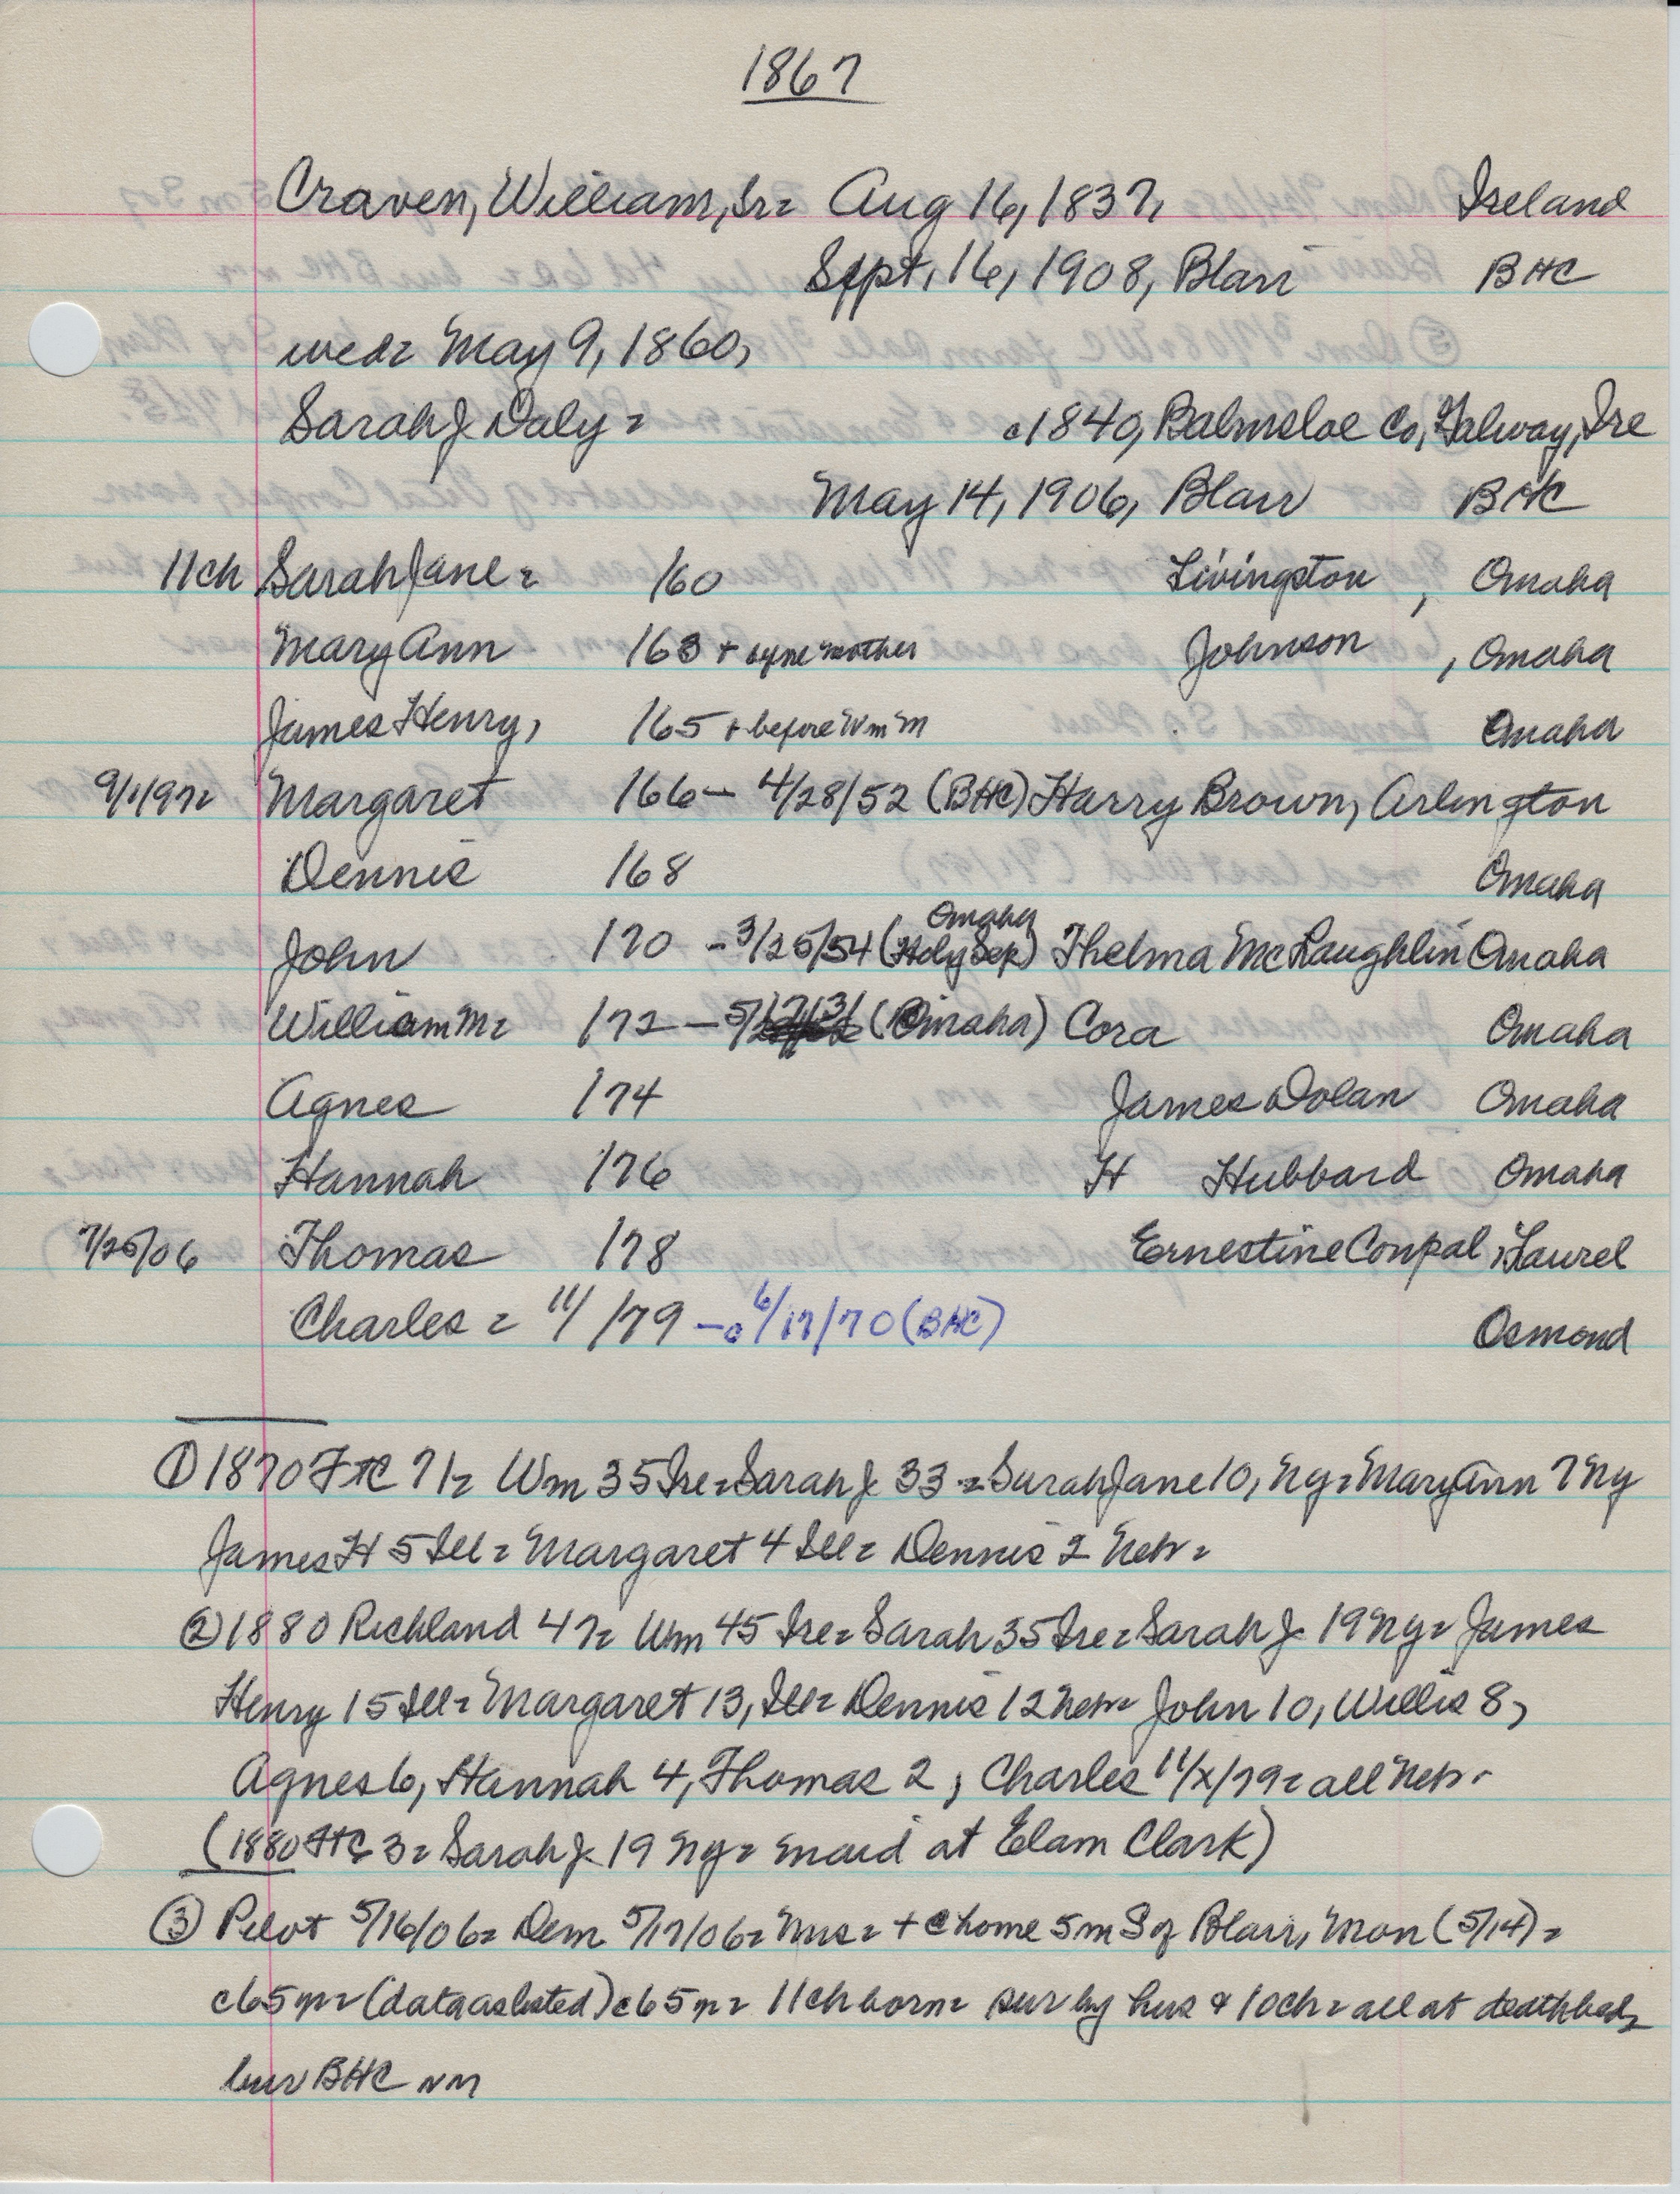 1867
Craven, William, Sr= Aug 16, 1837, Ireland
Sept, 16, 1908, Blair BHC
wed= May 9, 1860,
Sarah J Daly = c1840, Co, Galway, Ire
May 14, 1906, Blair BHC
11ch Sarah Jane = 160 Livingston, Omaha
Mary Ann 163 + mother Johnson, Omaha
James Henry, 165 + before Wm M Omaha
9/1/97= Margaret 166 - 4/28/52 (BHC) Harry Brown, Arlington
Dennis 168 Omaha
Omaha
John 170 - 3/25/54 (Holy Sep) Thelma McLaughlin Omaha
William M= 172 - (Omaha) Cora Omaha
Agnes 174 James Dolan Omaha
Hannah 176 H Hubbard Omaha
7/25/06 Thomas 178 Ernestine Conpal, Laurel
Charles = 11/179 - 6/17/70 (BHC) Osmond
① 1870 FtC 71= Wm 35 Ire= Sarah J 33 = Sarah Jane 10, Ny= Mary Ann 7 Ny
James H 5 Ill= Margaret 4 Ill= Dennis 2 Neb=
② 1880 Richland 47= Wm 45 Ire= Sarah 35 Ire= Sarah J 19 Ny= James
Henry 15 Ill= Margaret 13, Ill= Dennis 12 Neb= John 10, Willis 8,
Agnes 6, Hannah 4, Thomas 2, Charles 11/x/79= all Neb.
(1880 FtC 3= Sarah J 19 Ny= maid at Elam Clark)
③ Pilot 5/16/06= Dem 5/17/06= Mrs= + @ home 5 m S of Blair, Mon (5/14)=
c65yr= (data as listed) c65yr= 11ch born= sur by hus & 10ch= all at deathbed=
bur BHC nm